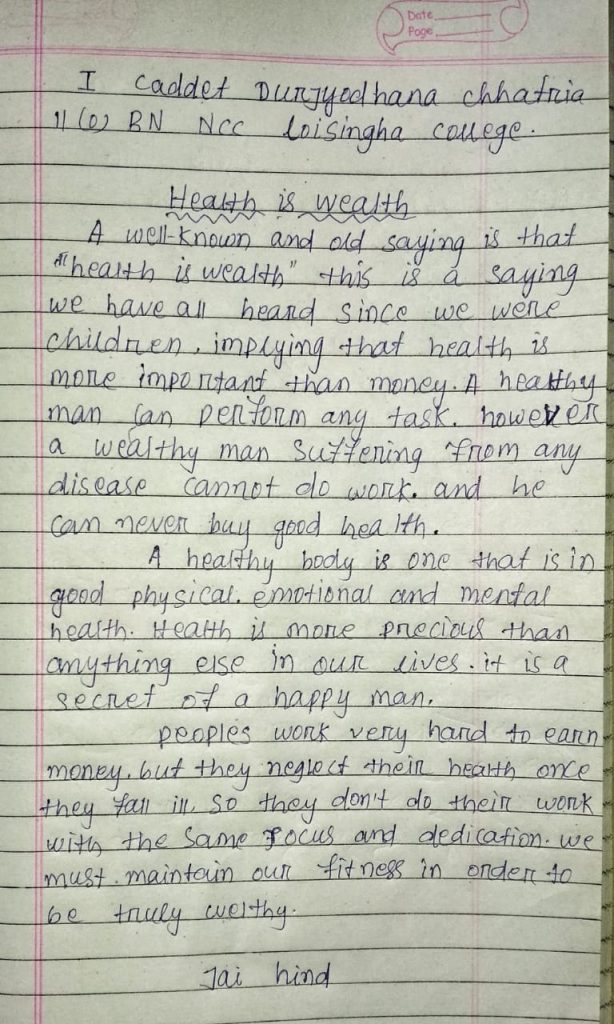 Date
Page
I Caddet Durjyodhana chhatria
11 (O) BN NCC loisingha college.
Health is wealth
A well-known and old saying is that
"health is wealth" this is a saying
we have all heard since we were
children. implying that health is
more important than money. A healthy
man can perform any task. however
a wealthy man suffering from any
disease cannot do work. and he
can never buy good health.
A healthy body is one that is in
good physical. emotional and mental
health. Health is more precious than
anything else in our lives. it is a
secret of a happy man.
peoples work very hard to earn
money. but they neglect their health once
they fall ill. so they don't do their work
with the same focus and dedication. we
must. maintain our fitness in order to
be truly welthy.
Jai hind